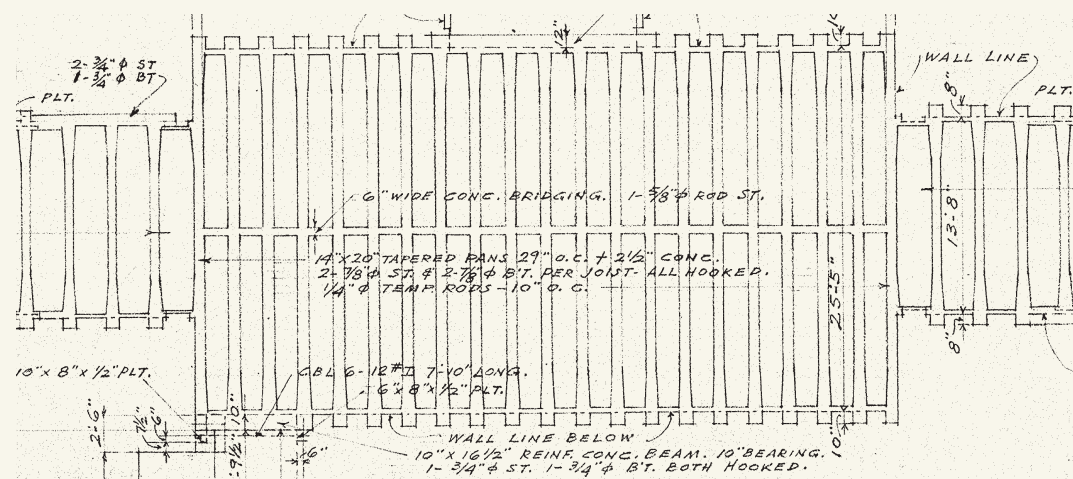 12"
10
2-3/4"⌀ ST
1-3/4"⌀ BT
PLT.
WALL LINE
PLT.
8"
6" WIDE CONC. BRIDGING. 1-5/8"⌀ ROD ST.
13'-8"
14"x20" TAPERED PANS 29" O.C. + 2 1/2" CONC.
2-7/8"⌀ ST. & 2-7/8"⌀ B'T. PER JOIST- ALL HOOKED.
1/4"⌀ TEMP. RODS - 10" O.C.
25'-5"
8"
10" x 8" x 1/2" PLT.
6-12# I 7'-10" LONG.
6"x8"x1/2" PLT.
2'-6"
7 1/2"
6"
10"
9 1/2"
6"
WALL LINE BELOW
10"
10"X16 1/2" REINF. CONC. BEAM. 10" BEARING.
1-3/4"⌀ ST. 1-3/4"⌀ B'T. BOTH HOOKED.